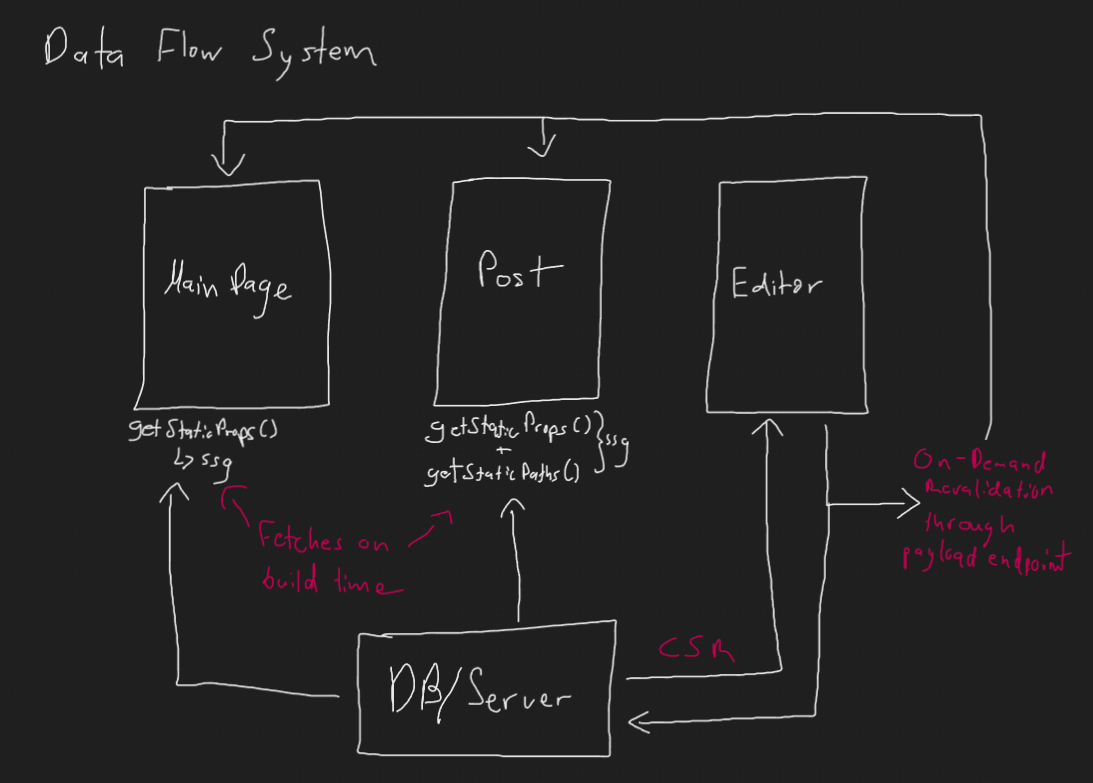 Data Flow System
Main Page
Post
Editor
getStaticProps()
↳ ssg
getStaticProps()
+
getStaticPaths()
} ssg
Fetches on
build time
On-Demand
Revalidation
through
payload endpoint
CSR
DB/Server